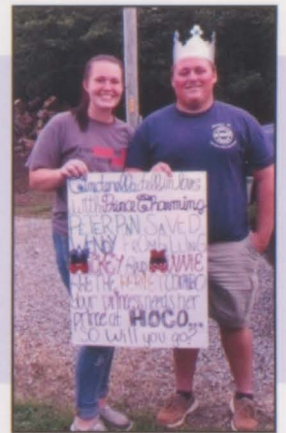 Cinderella fell in love
with Prince Charming
PETER PAN SAVED
WENDY FROM FALLING
MICKEY and MINNIE
ARE THE PERFECT COMBO
Your princess needs her
prince at HOCO...
SO will you go?